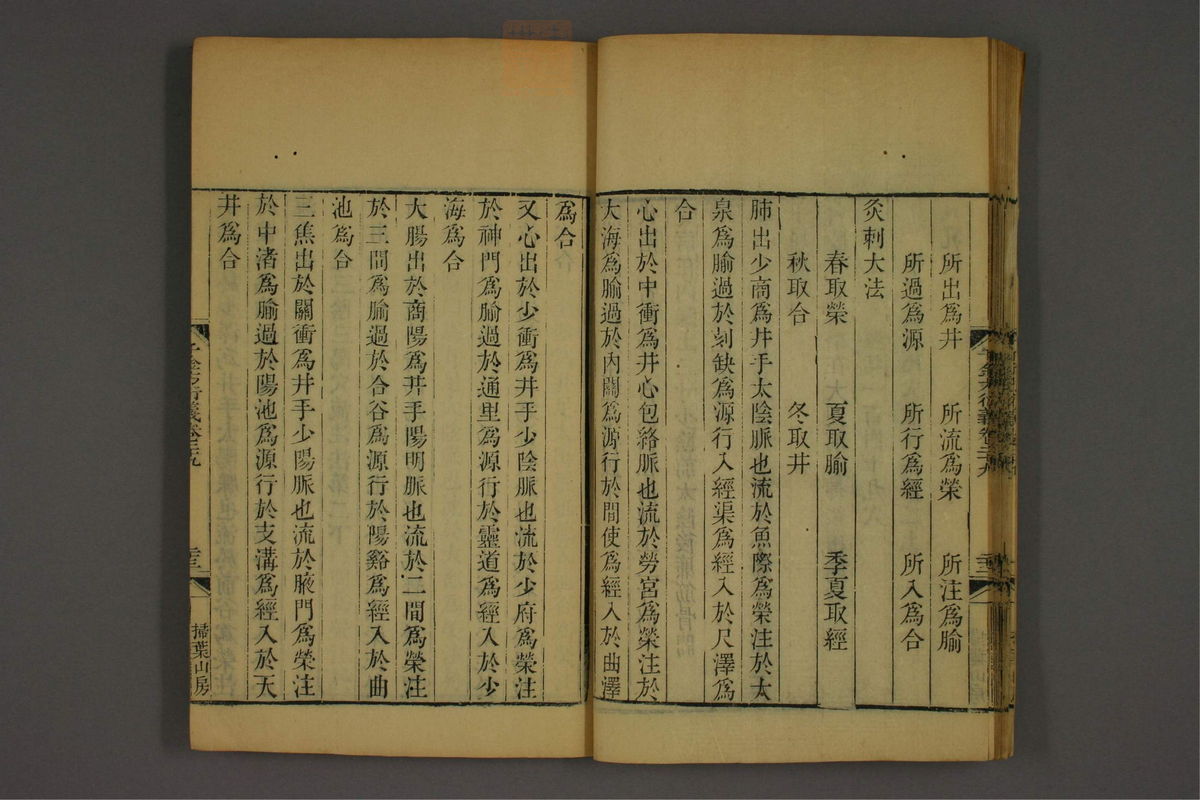 所出爲井　所流爲榮　所注爲腧
所過爲源　所行爲經　所入爲合
灸刺大法
春取榮　夏取腧　季夏取經
秋取合　冬取井
肺出少商爲井手太陰脈也流於魚際爲榮注於太
泉爲腧過於列缺爲源行入經渠爲經入於尺澤爲
合
心出於中衝爲井心包絡脈也流於勞宮爲榮注於
大海爲腧過於內關爲源行於間使爲經入於曲澤
爲合
又心出於少衝爲井手少陰脈也流於少府爲榮注
於神門爲腧過於通里爲源行於靈道爲經入於少
海爲合
大腸出於商陽爲井手陽明脈也流於二間爲榮注
於三間爲腧過於合谷爲源行於陽谿爲經入於曲
池爲合
三焦出於關衝爲井手少陽脈也流於腋門爲榮注
於中渚爲腧過於陽池爲源行於支溝爲經入於天
井爲合
千金方衍義卷二十九
掃葉山房